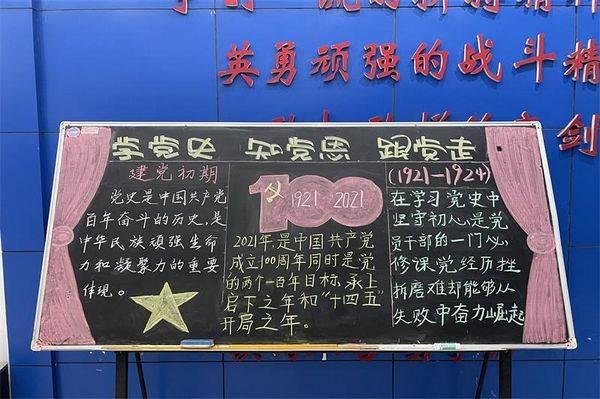 英勇顽强的战斗精
学党史 知党恩 跟党走
建党初期
党史是中国共产党
百年奋斗的历史,是
中华民族顽强生命
力和凝聚力的重要
体现。
100
1921 2021
2021年,是中国共产党
成立100周年同时是党
的两个一百年目标,承上
启下之年和“十四五”
开局之年。
(1921-1924)
在学习党史中
坚守初心是党
员干部的一门必
修课党,经历挫
折磨难却能够从
失败中奋力崛起